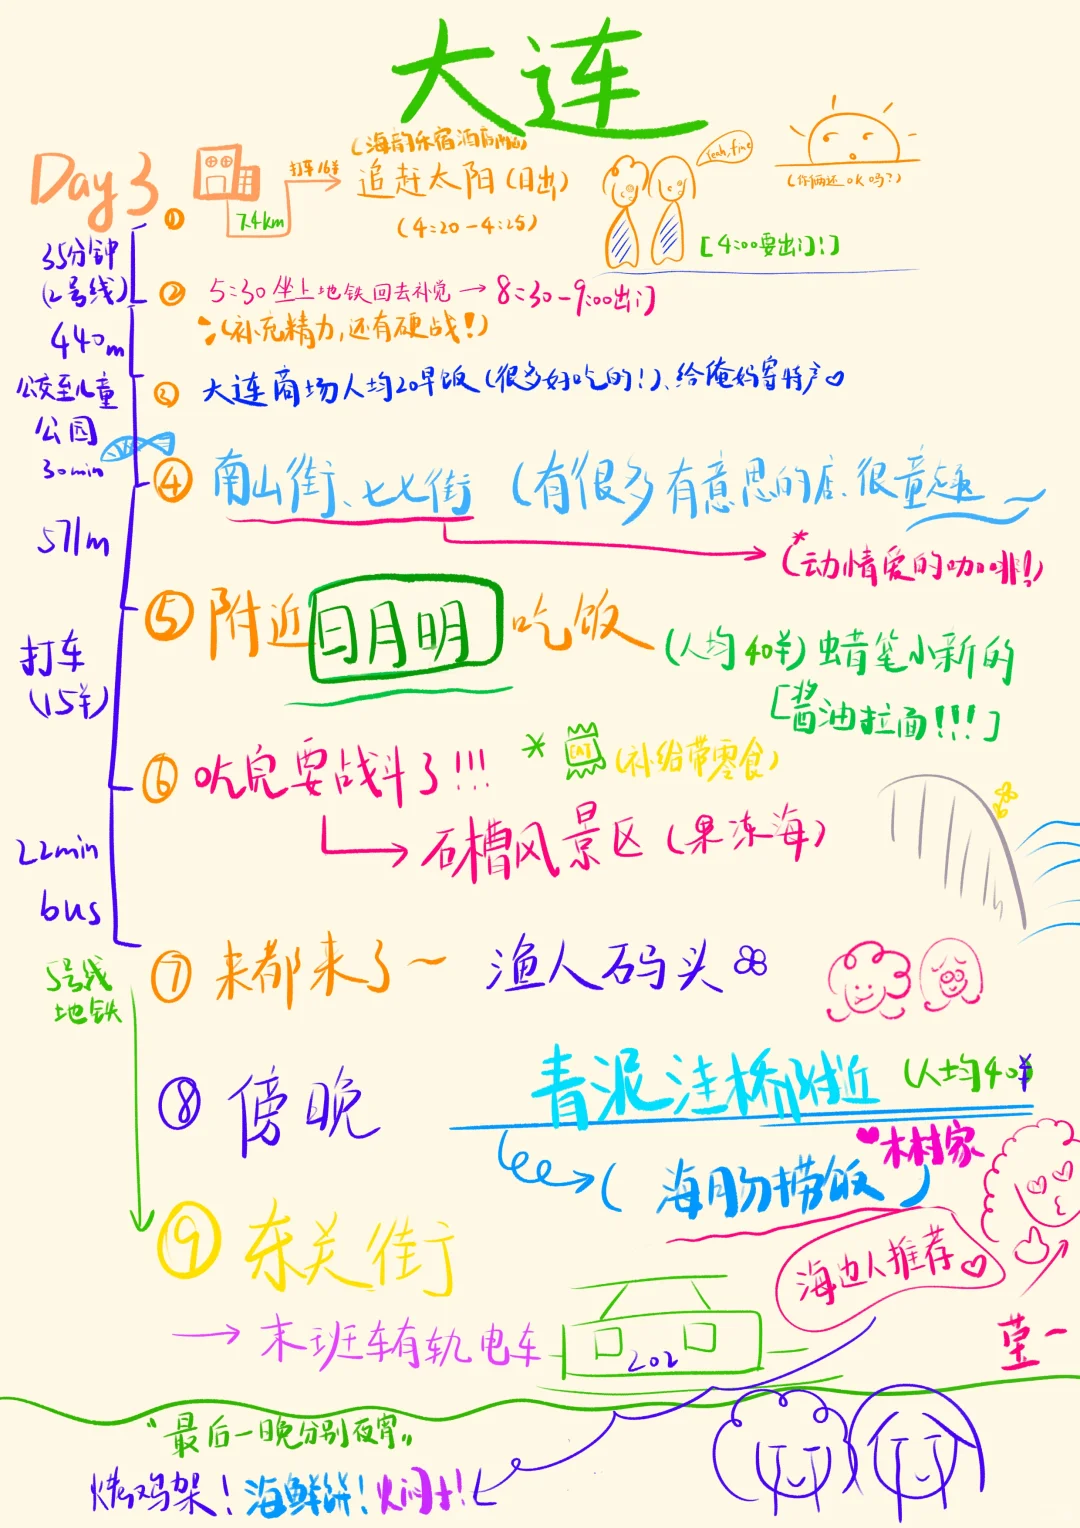 大连
Day 3
7.4km
打车16¥
追赶太阳（日出）
（4:20-4:25）
yeah, fine
（你俩还ok吗？）
[4:00要出门！]
①
35分钟
（2号线）
② 5:30坐上地铁回去补觉→8:30-9:00出门
（补充精力，还有硬战！）
440m
公交至儿童
公园
30min
③ 大连商场人均20早饭（很多好吃的！）、给俺妈寄特产♡
④ 南山街、七七街（有很多有意思的店、很童趣～
*（动情爱的咖啡!）
571m
⑤ 附近日月明吃饭
（人均40¥）蜡笔小新的
[酱油拉面!!!]
打车
（15¥）
⑥ 吃完要战斗了!!!
*（补给带零食）
→石槽风景区（果冻海）
22min
bus
⑦ 来都来了～ 渔人码头
5号线
地铁
⑧ 傍晚 青泥洼桥附近（人均40¥）
（海肠捞饭）♥木村家
海边人推荐♡
⑨ 东关街
→末班车有轨电车
202
"最后一晚分别夜宵"
烤鸡架！海鲜饼！焖子！